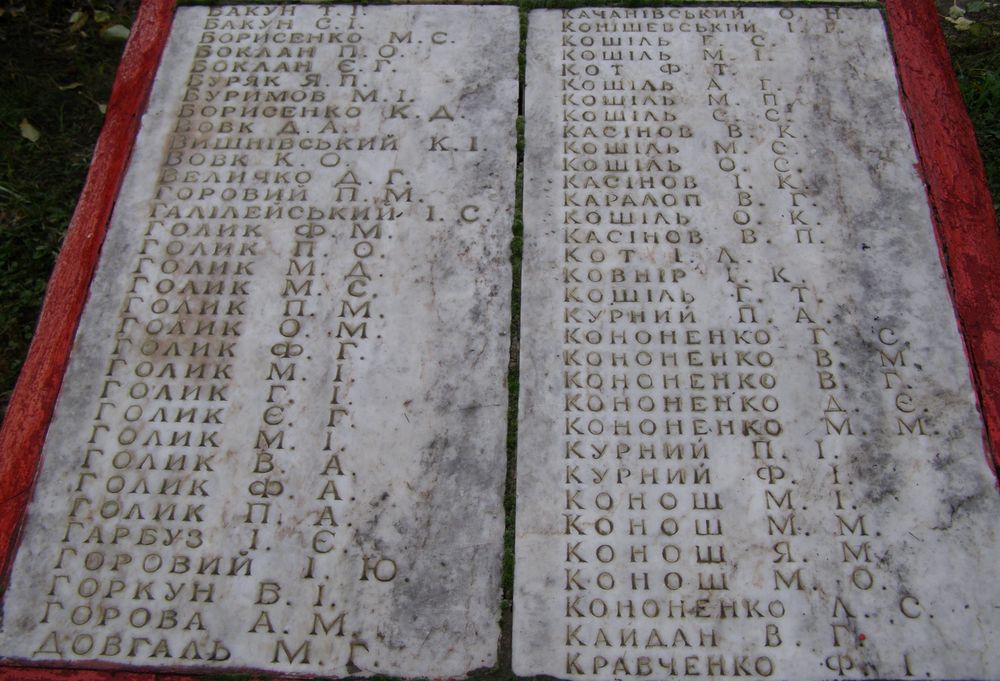 БАКУН Т. І.
БАКУН С. І.
БОРИСЕНКО М. С.
БОКЛАН П. О.
БОКЛАН Є. Г.
БУРЯК Я. П.
БУРИМОВ М. І.
БОРИСЕНКО К. Д.
ВОВК Д. А.
ВИШНІВСЬКИЙ К. І.
ВОВК К. О.
ВЕЛИЧКО Д. Г.
ГОРОВИЙ П. М.
ГАЛІЛЕЙСЬКИЙ І. С.
ГОЛИК Ф. М.
ГОЛИК П. О.
ГОЛИК М. Д.
ГОЛИК М. Є.
ГОЛИК П. М.
ГОЛИК О. М.
ГОЛИК Ф. Г.
ГОЛИК М. І.
ГОЛИК Г. І.
ГОЛИК Є. Г.
ГОЛИК М. І.
ГОЛИК В. А.
ГОЛИК Ф. А.
ГОЛИК П. А.
ГАРБУЗ І. Є.
ГОРОВИЙ І. Ю.
ГОРКУН В. І.
ГОРОВА А. М.
ДОВГАЛЬ М. Г.
КАЧАНІВСЬКИЙ О. Н.
КОНІШЕВСЬКИЙ І. Г.
КОШІЛЬ Г. С.
КОШІЛЬ М. І.
КОТ Ф. Т.
КОШІЛЬ А. Г.
КОШІЛЬ М. П.
КОШІЛЬ С. С.
КАСІНОВ В. К.
КОШІЛЬ М. С.
КОШІЛЬ О. С.
КАСІНОВ І. К.
КАРАЛОП В. Г.
КОШІЛЬ О. К.
КАСІНОВ В. П.
КОТ І. Л.
КОВНІР І. К.
КОШІЛЬ Г. Т.
КУРНИЙ П. А.
КОНОНЕНКО Т. С.
КОНОНЕНКО В. М.
КОНОНЕНКО В. Г.
КОНОНЕНКО Д. Є.
КОНОНЕНКО М. М.
КУРНИЙ П. І.
КУРНИЙ Ф. І.
КОНОШ М. І.
КОНОШ М. М.
КОНОШ Я. М.
КОНОШ М. О.
КОНОНЕНКО Л. С.
КАЙДАН В. Г.
КРАВЧЕНКО Ф. І.